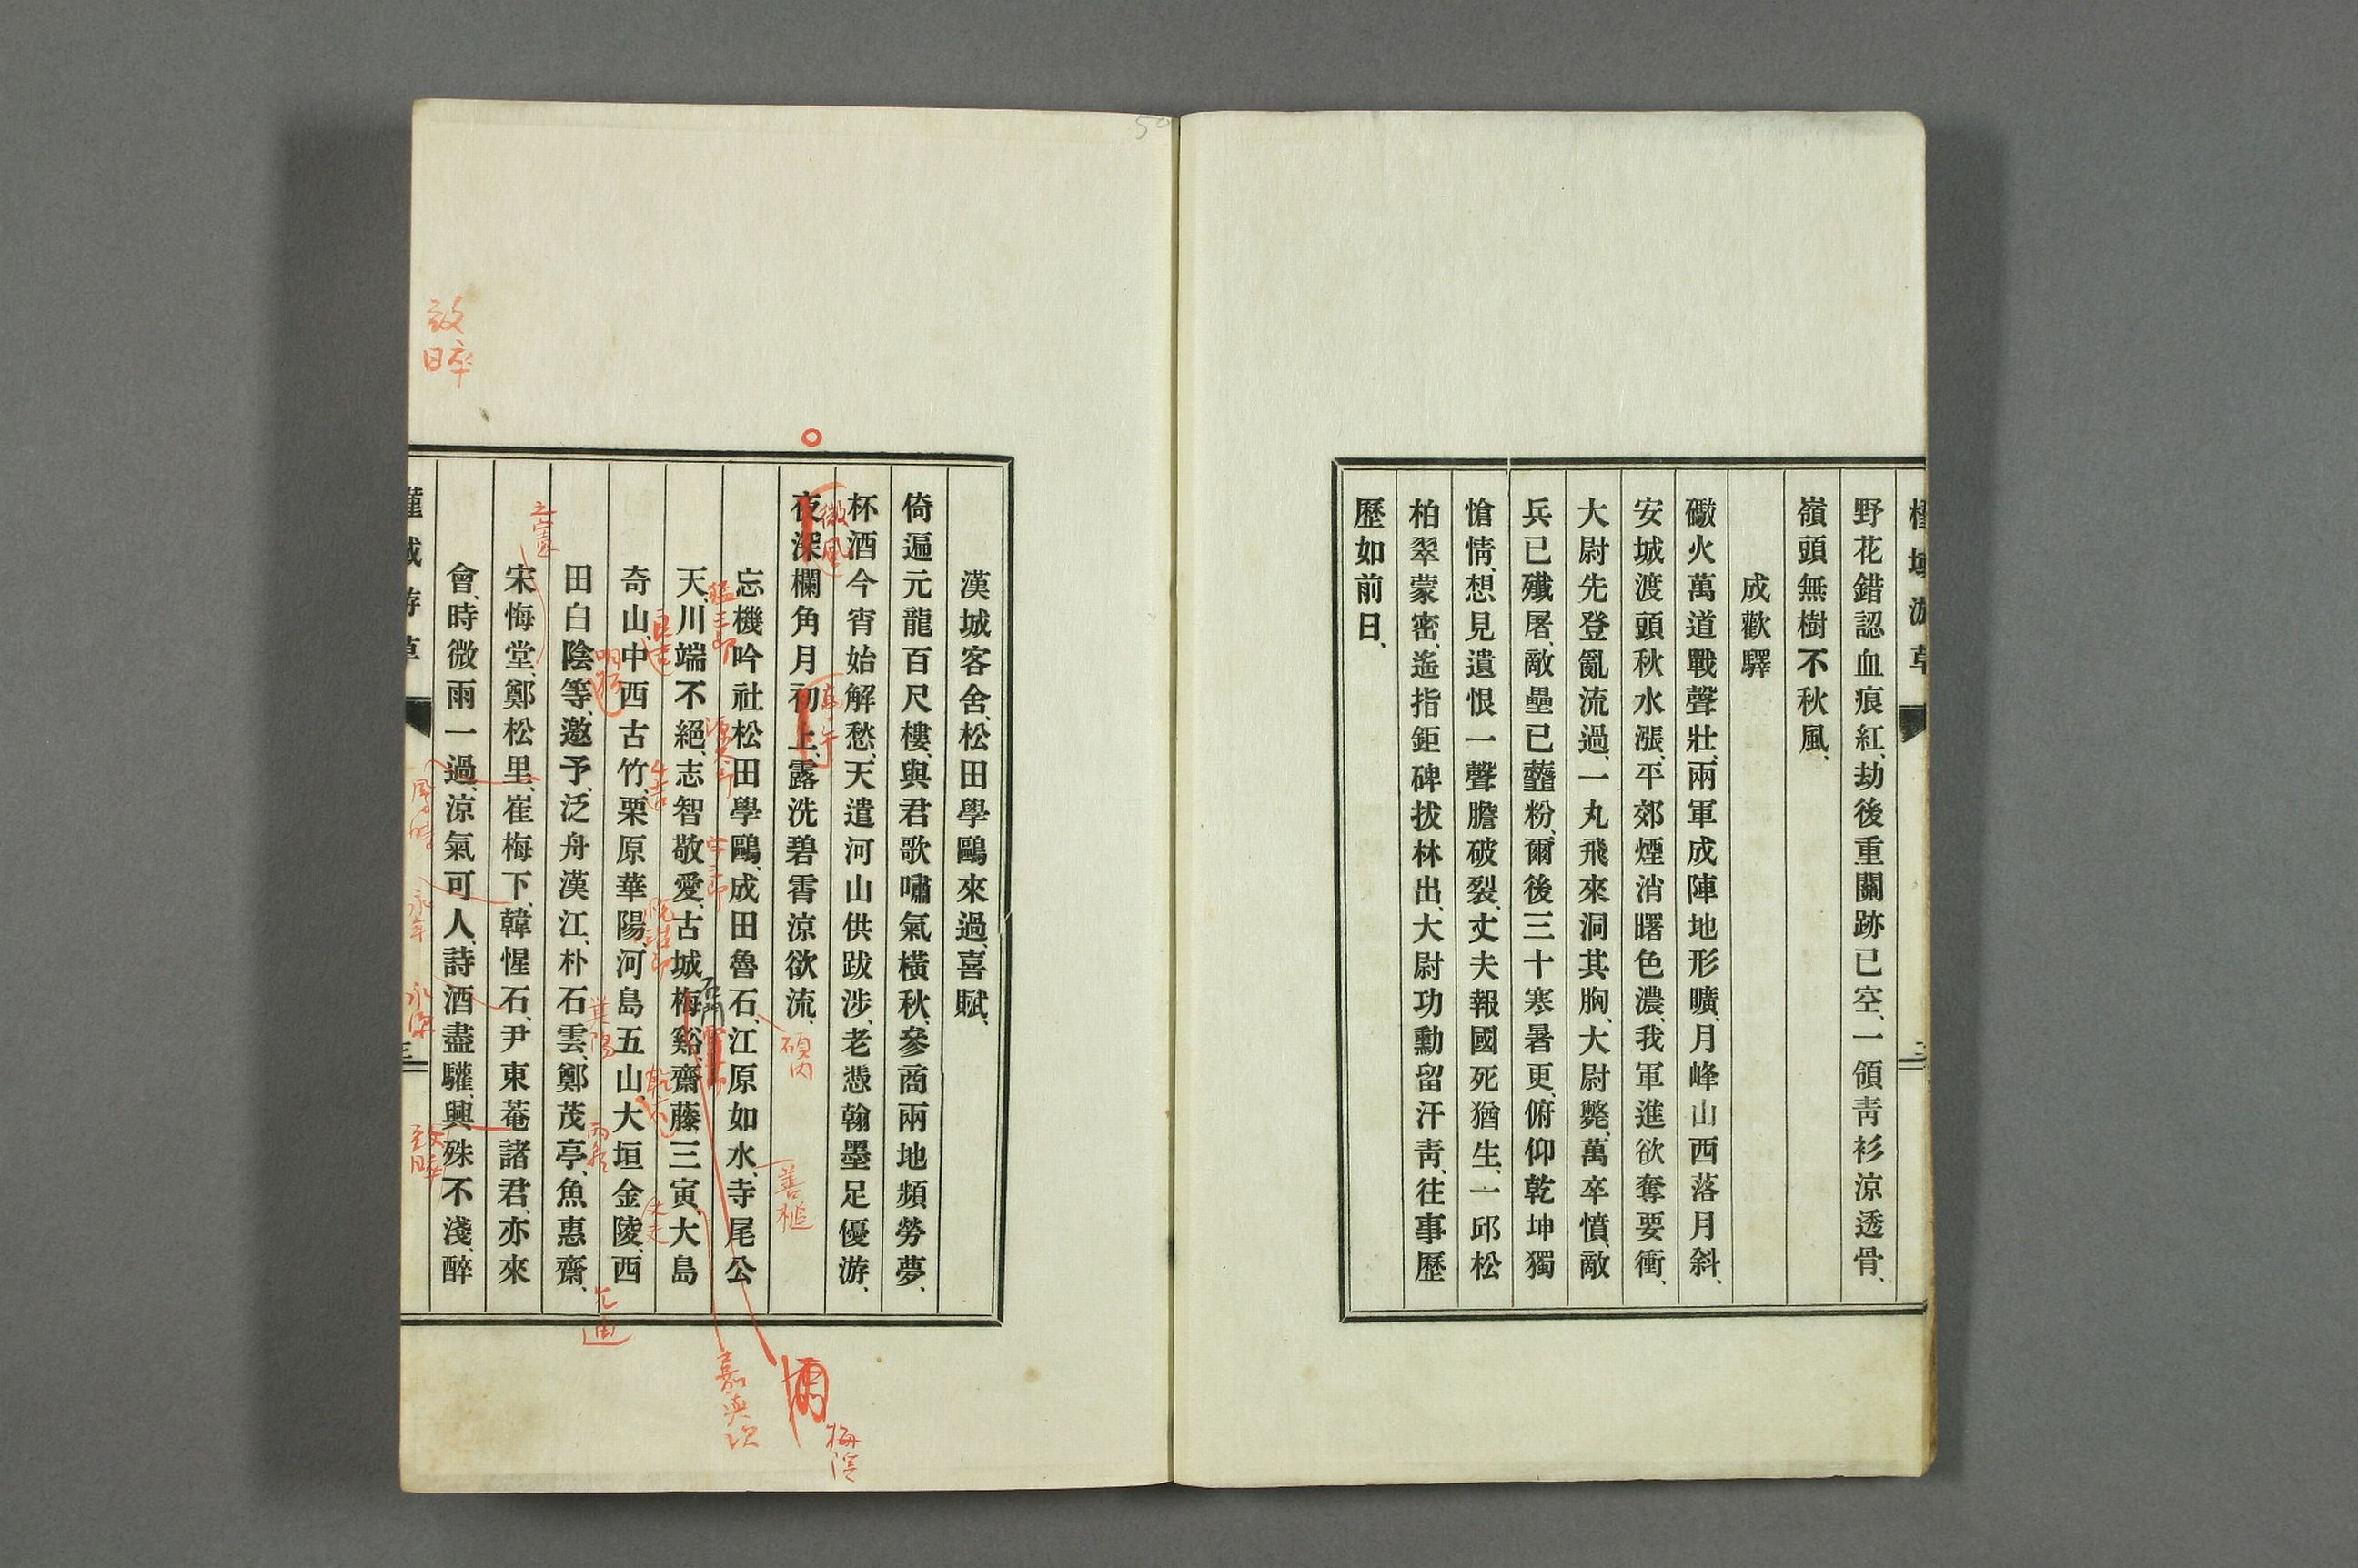 野花錯認血痕紅、劫後重關跡已空、一領靑衫涼透骨、
嶺頭無樹不秋風、
成歡驛
礮火萬道戰聲壯、兩軍成陣地形曠、月峰山西落月斜、
安城渡頭秋水漲、平郊煙消曙色濃、我軍進欲奪要衝、
大尉先登亂流過、一丸飛來洞其胸、大尉斃、萬卒憤、敵
兵已殲屠、敵壘已虀粉、爾後三十寒暑更、俯仰乾坤獨
愴情、想見遺恨一聲膽破裂、丈夫報國死猶生、一邱松
柏翠蒙密、遙指鉅碑拔林出、大尉功勳留汗靑、往事歷
歷如前日、
漢城客舍、松田學鷗來過、喜賦、
倚遍元龍百尺樓、與君歌嘯氣橫秋、參商兩地頻勞夢、
杯酒今宵始解愁、天遣河山供跋涉、老憑翰墨足優游、
夜深欄角月初上、露洗碧霄涼欲流、
微風
忘機吟社松田學鷗、成田魯石、江原如水、寺尾公
天、川端不絕、志智敬愛、古城梅谿、齋藤三寅、大島
奇山、中西古竹、栗原華陽、河島五山、大垣金陵、西
田白陰等、邀予、泛舟漢江、朴石雲、鄭茂亭、魚惠齋、
宋悔堂、鄭松里、崔梅下、韓惺石、尹東菴諸君、亦來
會、時微雨一過、涼氣可人、詩酒盡驩、興殊不淺、醉
槿域游草
三
碩內
善槌
猛三郎
嘉與次
梅溪
允迪
之憲
鳳時
永年
致昨
致昨